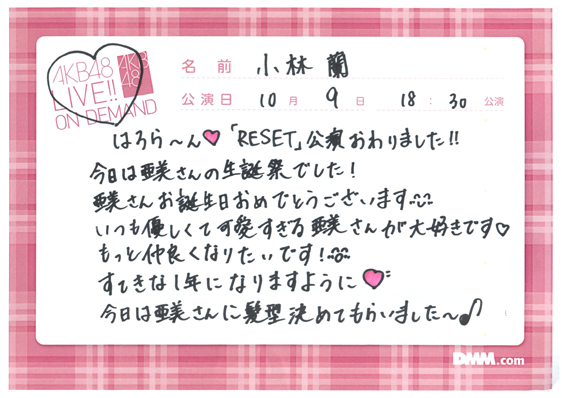 AKB48
LIVE!!
ON DEMAND
AKB
48
名前 小林蘭
公演日 10月 9日 18:30公演
はろら〜ん♥「RESET」公演おわりました!!
今日は亜美さんの生誕祭でした!
亜美さんお誕生日おめでとうございます
いつも優しくて可愛すぎる亜美さんが大好きです♡
もっと仲良くなりたいです!
すてきな1年になりますように♥
今日は亜美さんに髪型決めてもらいました〜♪
DMM.com